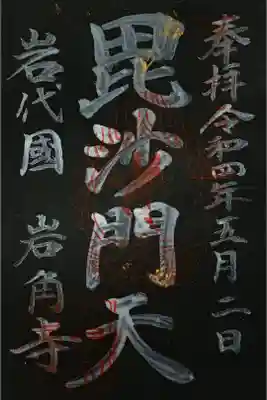 奉拝令和四年五月二日
毘沙門天
岩代國 岩角寺